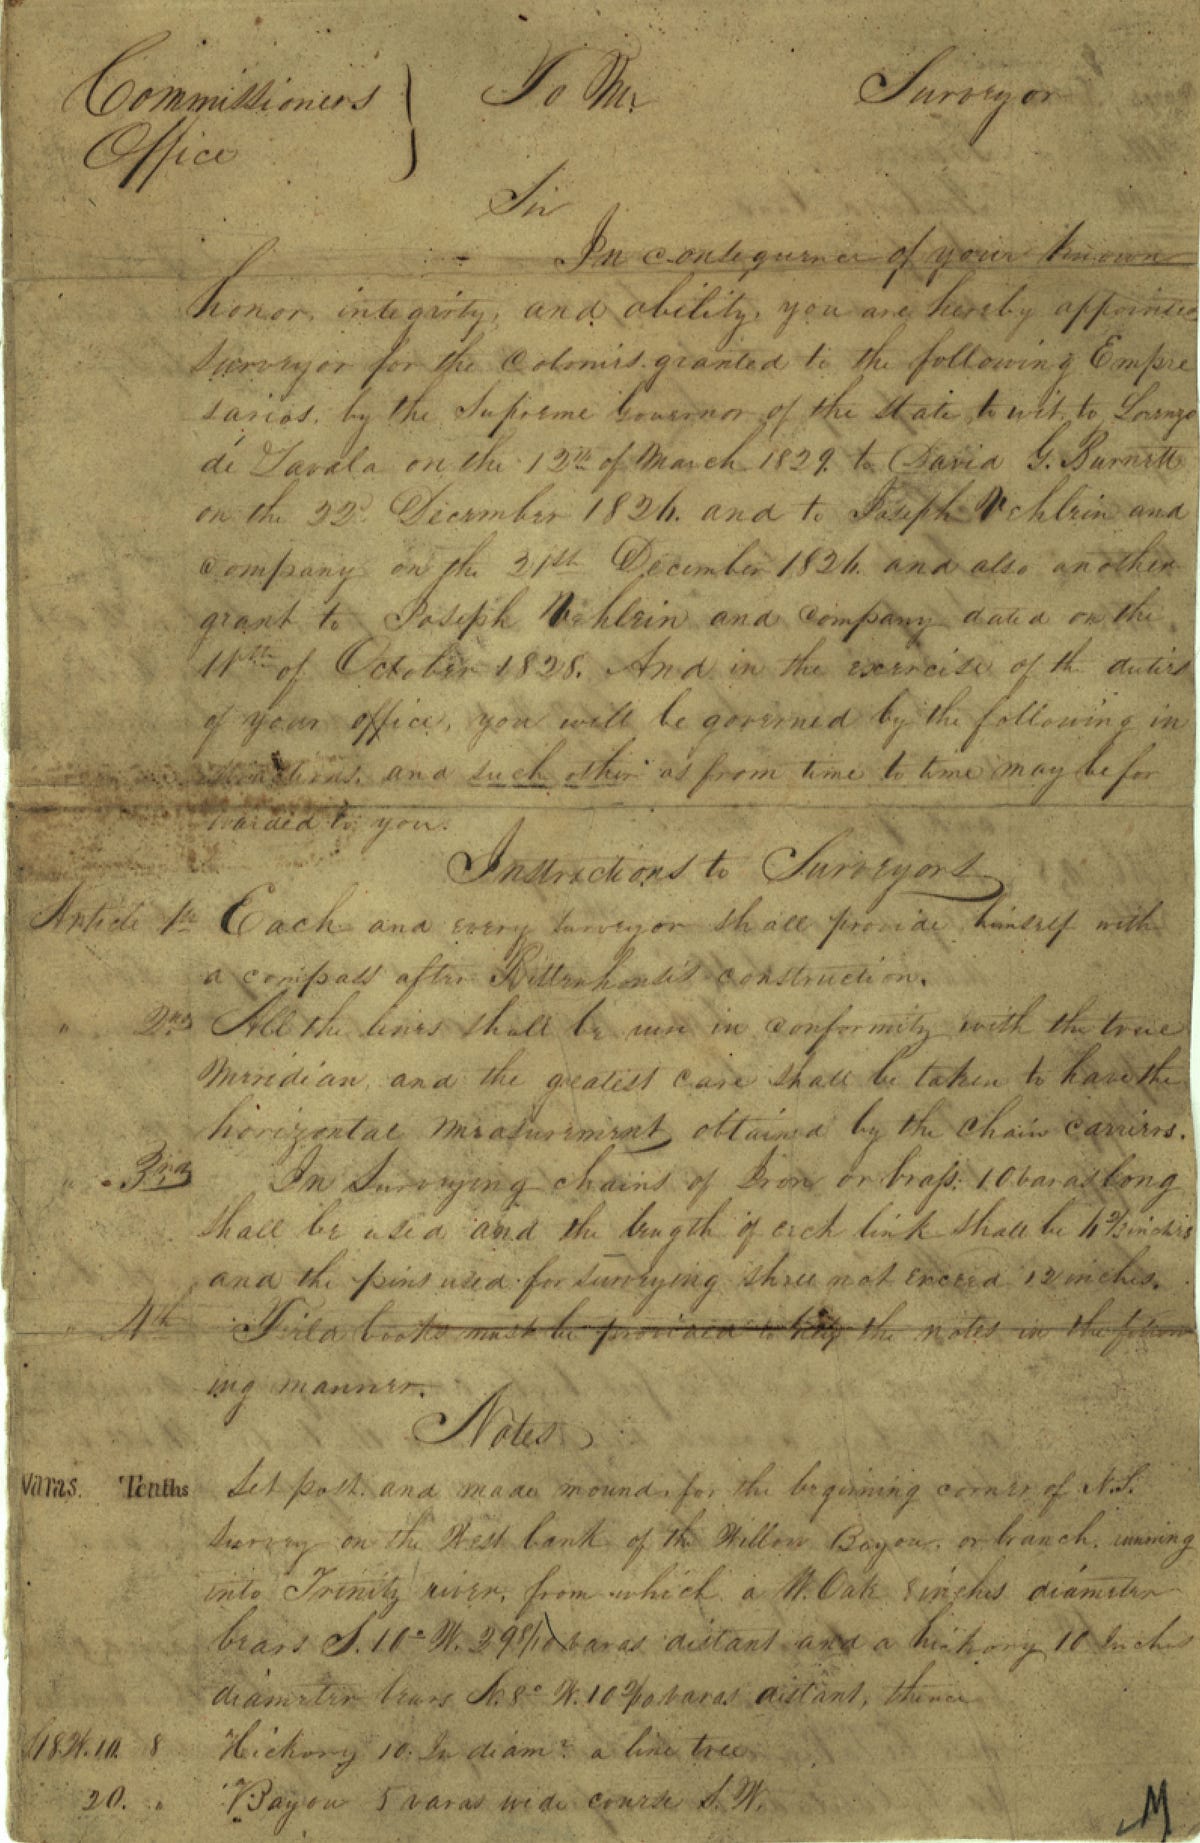 Commissioners To Mr. Surveyor
Office
Sir
In consequence of your known
honor, integrity, and ability, you are hereby appointed
surveyor for the Colonies granted to the following Empre
sarios, by the Supreme Governor of the State, to wit, to Lorenzo
de Zavala on the 12th of March 1829. to David G. Burnett
on the 22d December 1826. and to Joseph Vehlein and
company on the 21st December 1826. and also another
grant to Joseph Vehlein and company dated on the
11th of October 1828. And in the exercise of the duties
of your office, you will be governed by the following in
structions, and such other as from time to time may be for
warded to you.
Instructions to Surveyors
Article 1st Each and every surveyor shall provide himself with
a compass after Rittenhouse's construction.
" 2nd All the lines shall be run in conformity with the true
Meridian, and the greatest care shall be taken to have the
horizontal measurement obtained by the chain carriers.
" 3rd In Surveying chains of Iron or brass. 10 varas long
shall be used and the length of each link shall be inches
and the pins used for surveying shall not exceed 12 inches.
" 4th Field books must be provided to keep the notes in the follow
ing manner.
Notes
Varas. Tenths Set post. and made mound, for the beginning corner of N.S.
survey on the West bank of the Willow Bayou. or branch. running
into Trinity river, from which a W. Oak 8 inches diameter
bears S. 10° W. varas distant and a hickory 10 Inches
diameter bears N. 8° W. varas distant, thence
10. 8 Hickory 10. In diamr. a line tree
20. " Bayou 5 varas wide course S.W.
M